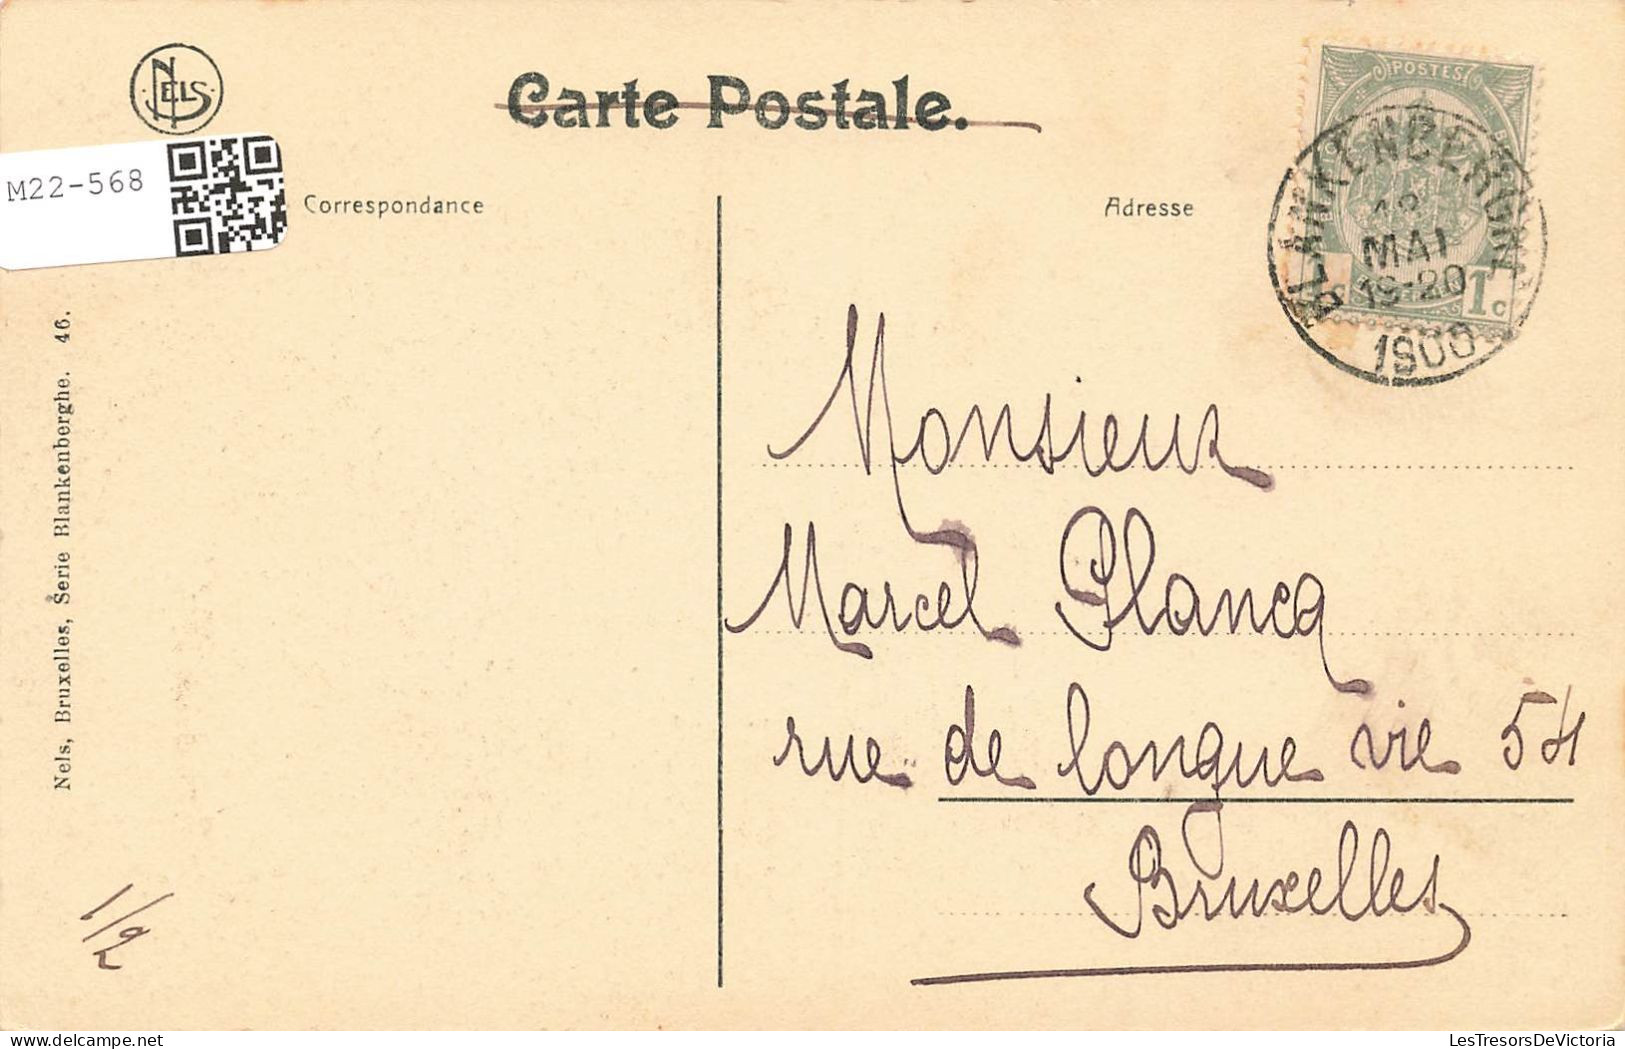 NELS
Carte Postale.
M22-568
Correspondance
Adresse
POSTES
1c
MAI
19-20
Nels, Bruxelles, Série Blankenberghe. 46.
Monsieur
Marcel Plancq
rue de longue vie 54
Bruxelles
1/2
LesTresorsDeVictoria.com